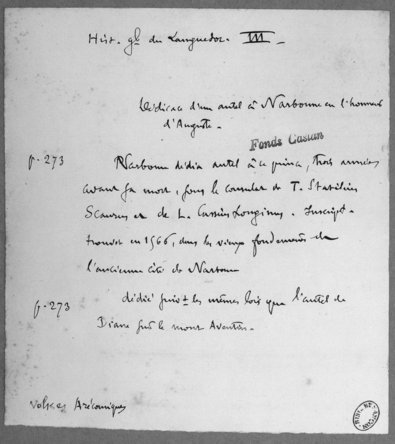 Hist. gl du Languedoc. III
Dédicace d'un autel à Narbonne en l'honneur
d'Auguste.
Fonds Cazian
p. 273 Narbonne dédia autel à ce prince, trois années
avant sa mort, sous le consulat de T. Statilius
Scaurus et de L. Cassius Longinus. Inscript.
trouvée en 1566, dans les vieux fondements de
l'ancienne cité de Narbonne
p. 273 dédié suivt les mêmes lois que l'autel de
Diane sur le mont Aventin.
Volkes Arécomiques